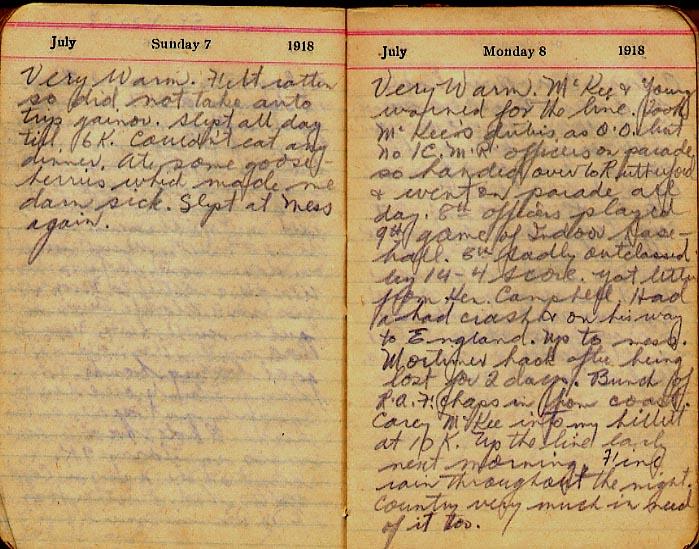 July Sunday 7 1918
Very Warm. Felt rotten
so did not take auto
trip. Slept all day
till 6 K. Couldn't eat any
dinner. Ate some goose-
berries which made me
darn sick. Slept at Mess
again.
July Monday 8 1918
Very Warm. McKee & Young
warned for the line. Took
McKee's dutis as O.O. but
no I.C.M.R. officers on parade
so handed over to Rutherford
& went on parade all
day. 8th officers played
9th game of Indoor Base-
ball. 8th badly outclassed
by 14-4 score. Got letter
from Ken. Campbell. Had
a bad crash on his way
to England. Up to mess.
Mortimer back after being
lost for 2 days. Bunch of
R.A.F. chaps in from coast.
Carey McKee into my billet
at 10 K. Up the line early
next morning. Fine
rain throughout the night.
Country very much in need
of it too.